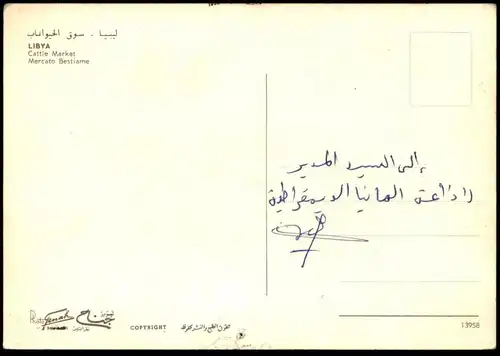 ليبيا - سوق الحيوانات
LIBYA
Cattle Market
Mercato Bestiame
إلى السيد المدير
إذاعة المانيا الديمقراطية
جناح
COPYRIGHT
حقوق الطبع والنشر محفوظة
13958